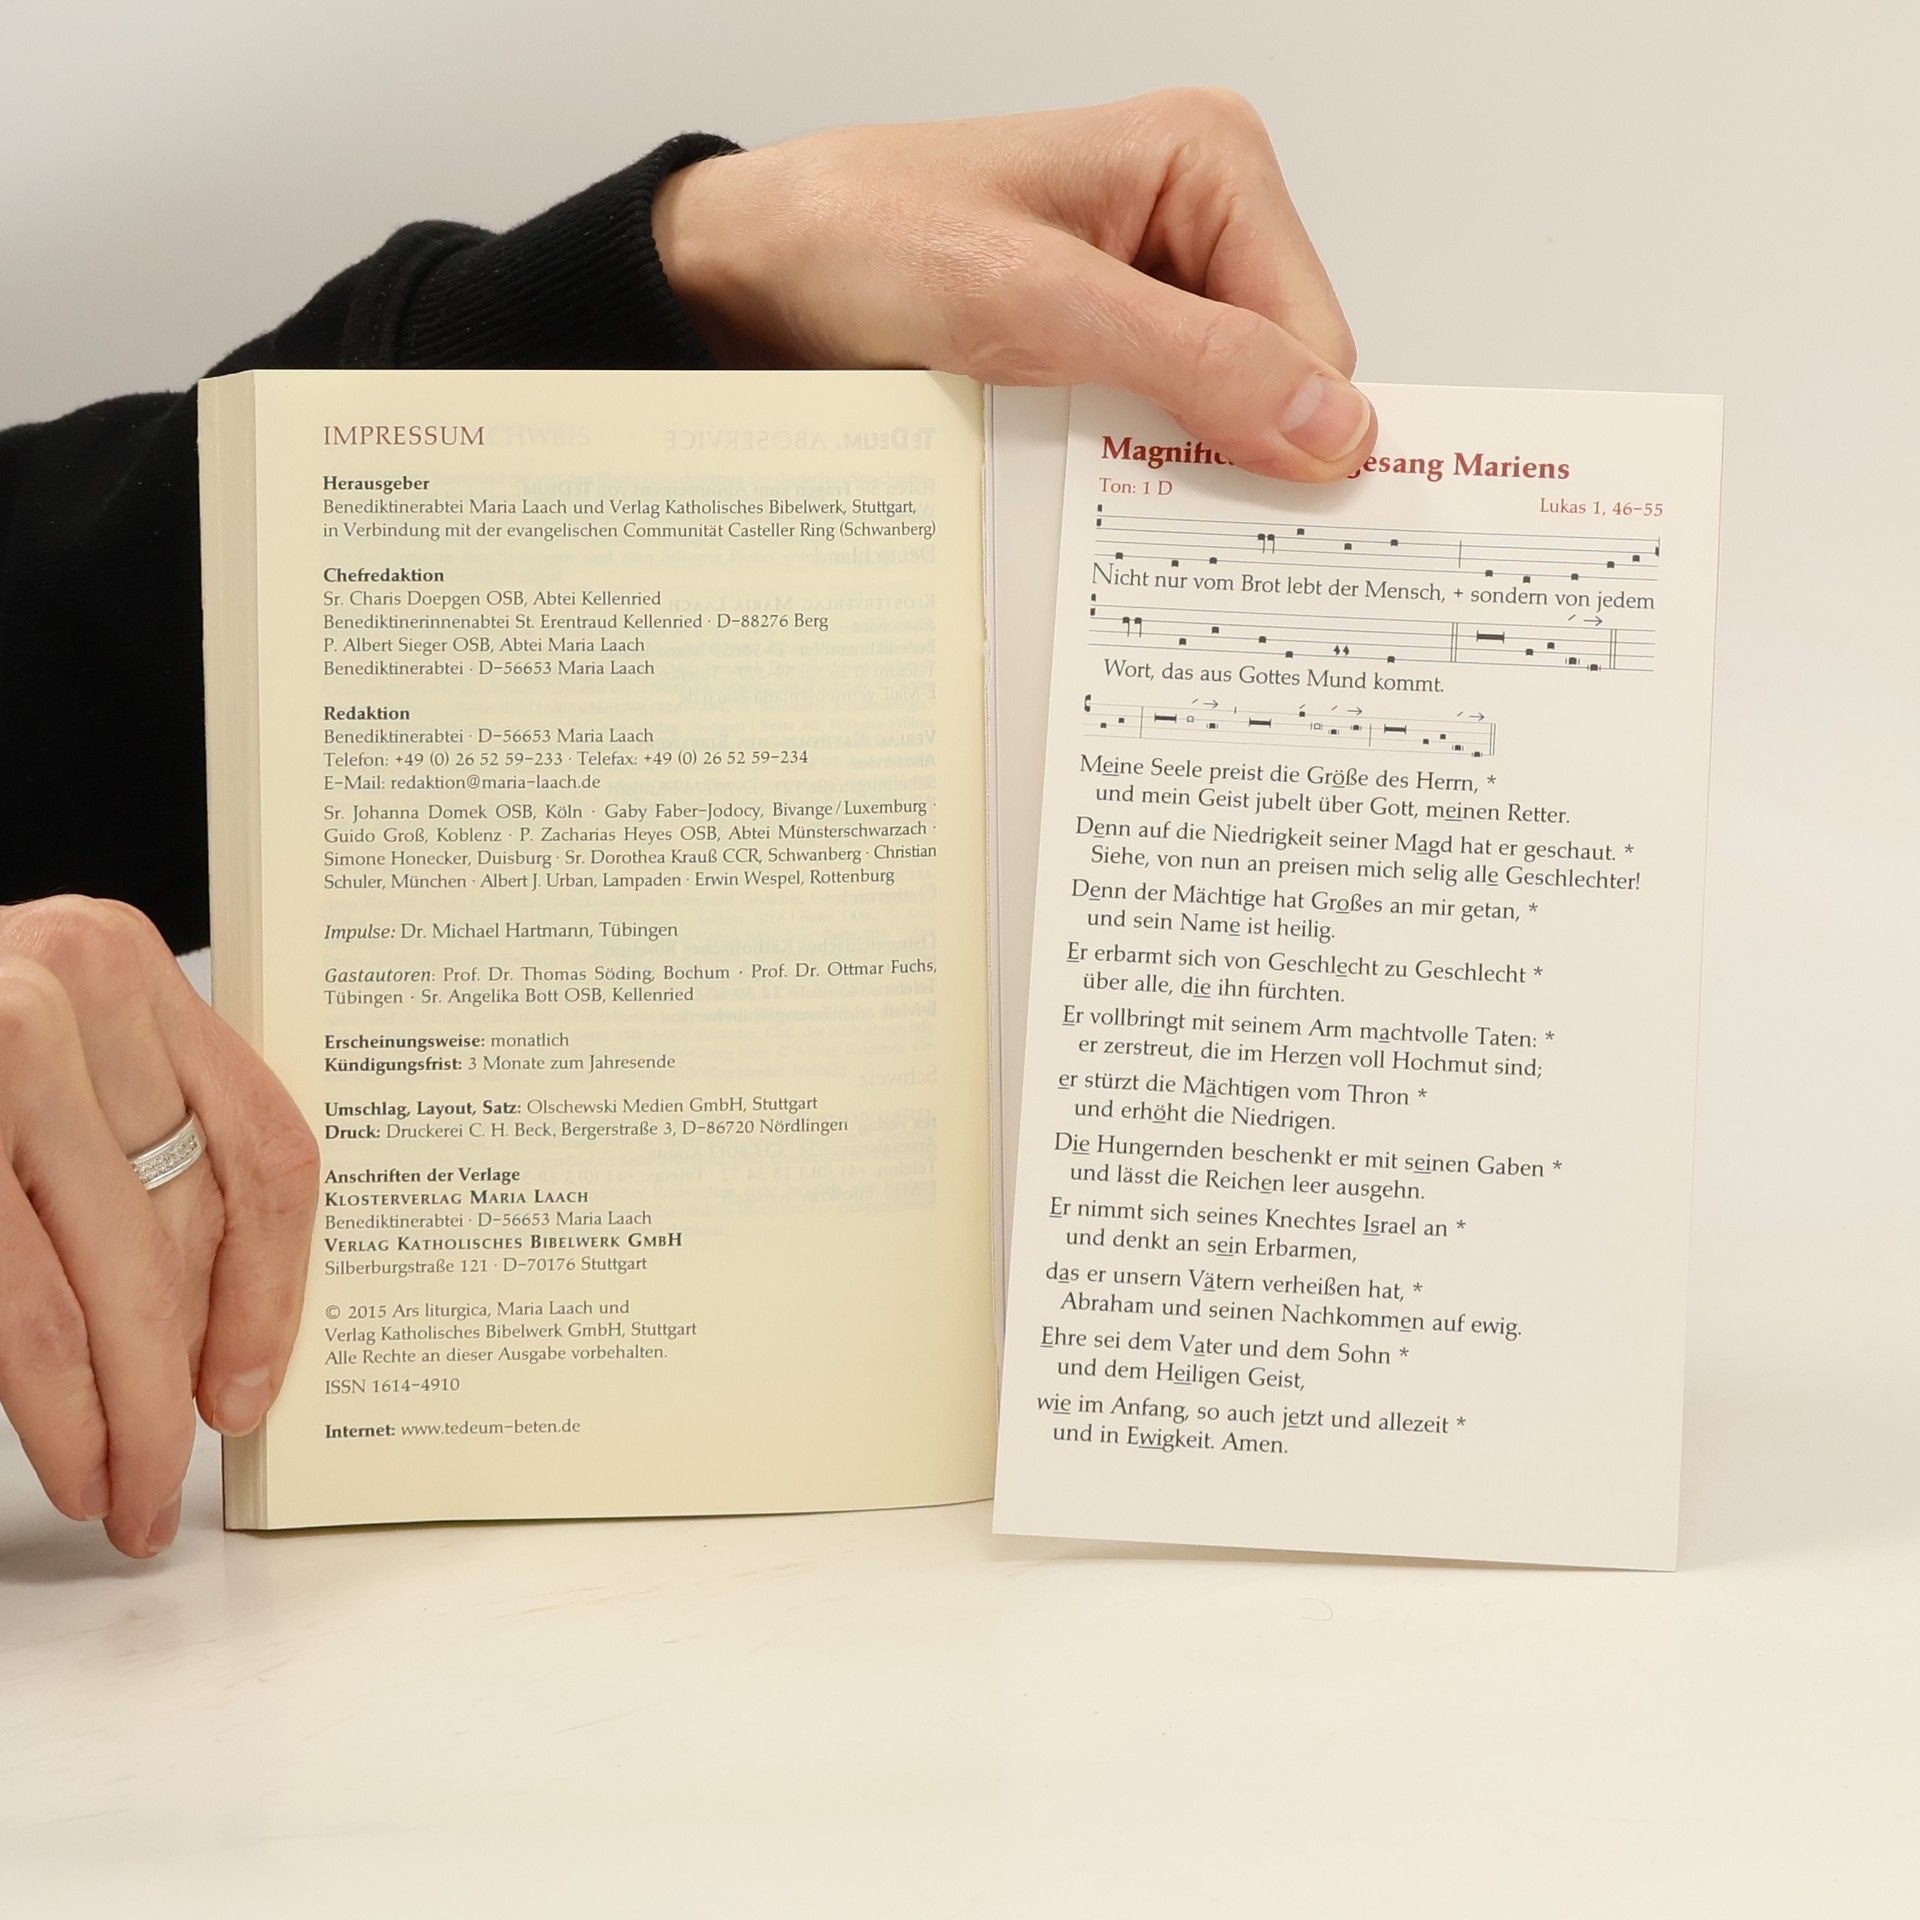 IMPRESSUM
Herausgeber
Benediktinerabtei Maria Laach und Verlag Katholisches Bibelwerk, Stuttgart,
in Verbindung mit der evangelischen Communität Casteller Ring (Schwanberg)
Chefredaktion
Sr. Charis Doepgen OSB, Abtei Kellenried
Benediktinerinnenabtei St. Erentraud Kellenried · D-88276 Berg
P. Albert Sieger OSB, Abtei Maria Laach
Benediktinerabtei · D-56653 Maria Laach
Redaktion
Benediktinerabtei · D-56653 Maria Laach
Telefon: +49 (0) 26 52 59-233 · Telefax: +49 (0) 26 52 59-234
E-Mail: redaktion@maria-laach.de
Sr. Johanna Domek OSB, Köln · Gaby Faber-Jodocy, Bivange/Luxemburg ·
Guido Groß, Koblenz · P. Zacharias Heyes OSB, Abtei Münsterschwarzach ·
Simone Honecker, Duisburg · Sr. Dorothea Krauß CCR, Schwanberg · Christian
Schuler, München · Albert J. Urban, Lampaden · Erwin Wespel, Rottenburg
Impulse: Dr. Michael Hartmann, Tübingen
Gastautoren: Prof. Dr. Thomas Söding, Bochum · Prof. Dr. Ottmar Fuchs,
Tübingen · Sr. Angelika Bott OSB, Kellenried
Erscheinungsweise: monatlich
Kündigungsfrist: 3 Monate zum Jahresende
Umschlag, Layout, Satz: Olschewski Medien GmbH, Stuttgart
Druck: Druckerei C. H. Beck, Bergerstraße 3, D-86720 Nördlingen
Anschriften der Verlage
KLOSTERVERLAG MARIA LAACH
Benediktinerabtei · D-56653 Maria Laach
VERLAG KATHOLISCHES BIBELWERK GMBH
Silberburgstraße 121 · D-70176 Stuttgart
© 2015 Ars liturgica, Maria Laach und
Verlag Katholisches Bibelwerk GmbH, Stuttgart
Alle Rechte an dieser Ausgabe vorbehalten.
ISSN 1614-4910
Internet: www.tedeum-beten.de
Mariens
Ton: 1 D
Lukas 1, 46-55
Nicht nur vom Brot lebt der Mensch, + sondern von jedem
Wort, das aus Gottes Mund kommt.
Meine Seele preist die Größe des Herrn, *
und mein Geist jubelt über Gott, meinen Retter.
Denn auf die Niedrigkeit seiner Magd hat er geschaut. *
Siehe, von nun an preisen mich selig alle Geschlechter!
Denn der Mächtige hat Großes an mir getan, *
und sein Name ist heilig.
Er erbarmt sich von Geschlecht zu Geschlecht *
über alle, die ihn fürchten.
Er vollbringt mit seinem Arm machtvolle Taten: *
er zerstreut, die im Herzen voll Hochmut sind;
er stürzt die Mächtigen vom Thron *
und erhöht die Niedrigen.
Die Hungernden beschenkt er mit seinen Gaben *
und lässt die Reichen leer ausgehn.
Er nimmt sich seines Knechtes Israel an *
und denkt an sein Erbarmen,
das er unsern Vätern verheißen hat, *
Abraham und seinen Nachkommen auf ewig.
Ehre sei dem Vater und dem Sohn *
und dem Heiligen Geist,
wie im Anfang, so auch jetzt und allezeit *
und in Ewigkeit. Amen.